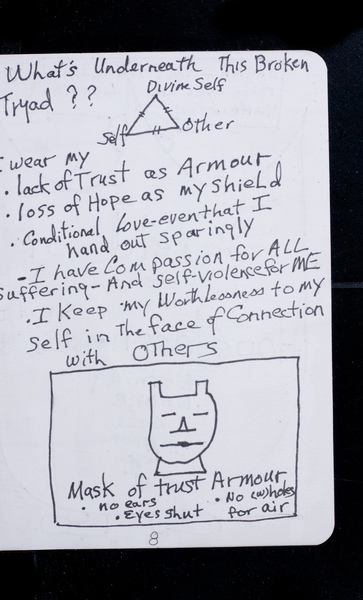 What's Underneath This Broken
Tryad ??
Divine Self
Self
Other
I wear my
. lack of Trust as Armour
. loss of Hope as my Shield
. Conditional Love-even that I
hand out sparingly
- I have Compassion for ALL
suffering - And self-violence for ME
. I Keep my Worthlessness to my
self in the face of Connection
with OTHERS
Mask of trust Armour
. no ears
. Eyes shut
. No (w)holes
for air
8